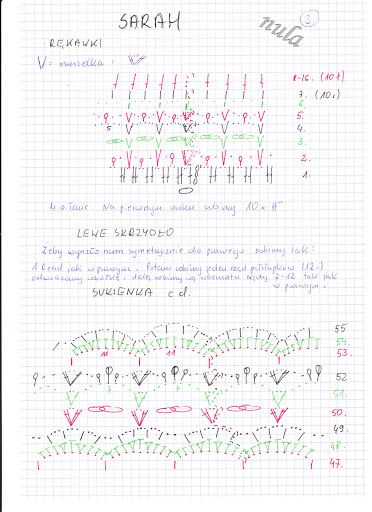 SARAH
nula
2
RĘKAWKI
V = muszelka =
8-16. (10 )
7. (10 )
6.
5.
5 4.
3.
2.
1.
4 o. Na pierwszym robimy 10 x
LEWE SKRZYDŁO
Żeby wyszło nam symetrycznie do prawego robimy tak:
1 Rząd jak w prawym. Potem robimy jeden rząd półsłupków (12.)
odwracamy robótkę i dalej robimy wg schematu rzędy 2-12 tak jak
w prawym.
SUKIENKA c.d.
55
54.
11 11 53.
52.
51.
50.
49.
48.
47.